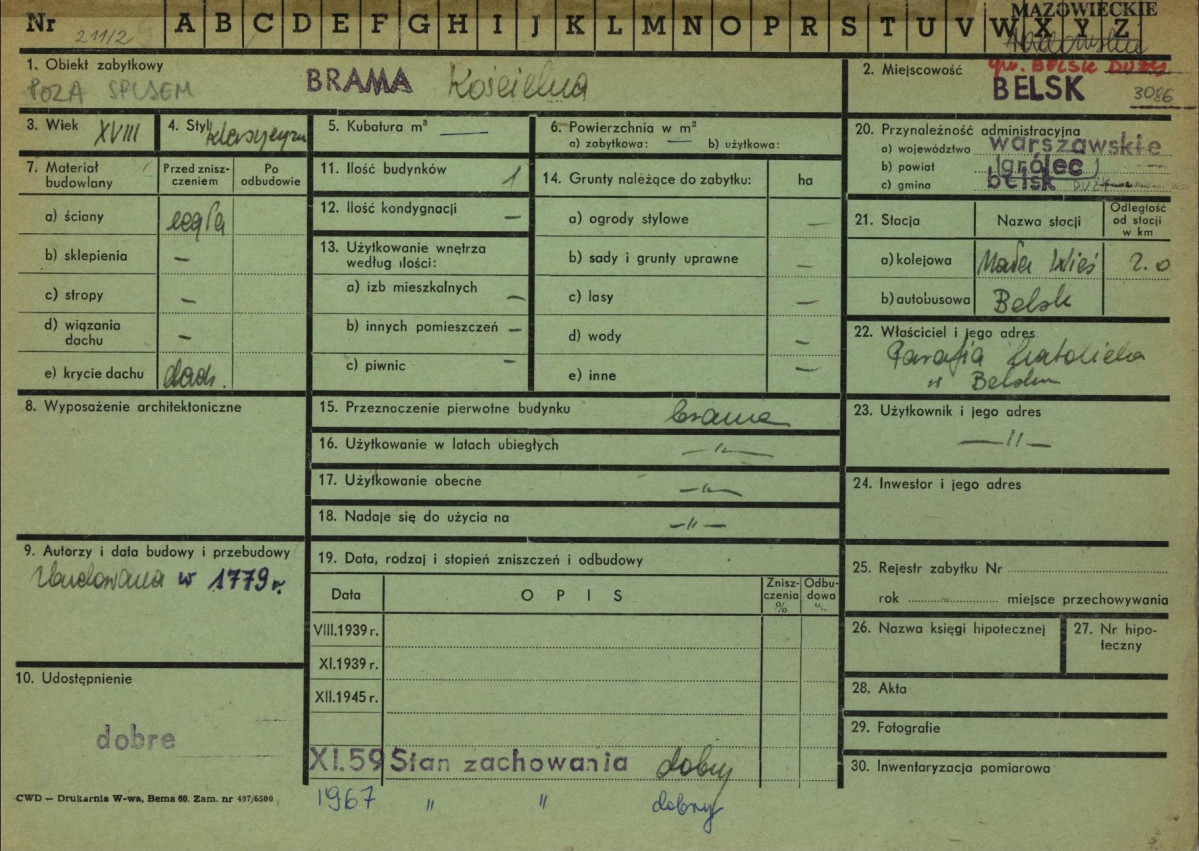 Nr 211/2 A B C D E F G H I J K L M N O P R S T U V W X Y Z
MAZOWIECKIE
1. Obiekt zabytkowy
POZA SPISEM
BRAMA Kościelna
2. Miejscowość
gm. BELSK DUŻY
BELSK
3086
3. Wiek XVIII
4. Styl klasycyzm
5. Kubatura m³ —
6. Powierzchnia w m²
a) zabytkowa: — b) użytkowa:
7. Materiał budowlany
Przed zniszczeniem
Po odbudowie
a) ściany cegła
b) sklepienia —
c) stropy —
d) wiązania dachu —
e) krycie dachu dach.
8. Wyposażenie architektoniczne
9. Autorzy i data budowy i przebudowy
Zbudowana w 1779 r.
10. Udostępnienie
dobre
11. Ilość budynków 1
12. Ilość kondygnacji —
13. Użytkowanie wnętrza według ilości:
a) izb mieszkalnych —
b) innych pomieszczeń —
c) piwnic —
14. Grunty należące do zabytku: ha
a) ogrody stylowe —
b) sady i grunty uprawne —
c) lasy —
d) wody —
e) inne —
15. Przeznaczenie pierwotne budynku brama
16. Użytkowanie w latach ubiegłych —"—
17. Użytkowanie obecne —"—
18. Nadaje się do użycia na —"—
19. Data, rodzaj i stopień zniszczeń i odbudowy
Data
OPIS
Zniszczenia %
Odbudowa %
VIII.1939 r.
XI.1939 r.
XII.1945 r.
XI.59 Stan zachowania dobry
1967 " " dobry
20. Przynależność administracyjna
a) województwo warszawskie
b) powiat grójec
c) gmina belsk DUŻY
21. Stacja
Nazwa stacji
Odległość od stacji w km
a) kolejowa Mała Wieś 2.0
b) autobusowa Belsk
22. Właściciel i jego adres
Parafia katolicka
w Belsku
23. Użytkownik i jego adres
—"—
24. Inwestor i jego adres
25. Rejestr zabytku Nr
rok miejsce przechowywania
26. Nazwa księgi hipotecznej
27. Nr hipoteczny
28. Akta
29. Fotografie
30. Inwentaryzacja pomiarowa
CWD — Drukarnia W-wa, Bema 60. Zam. nr 497/6500